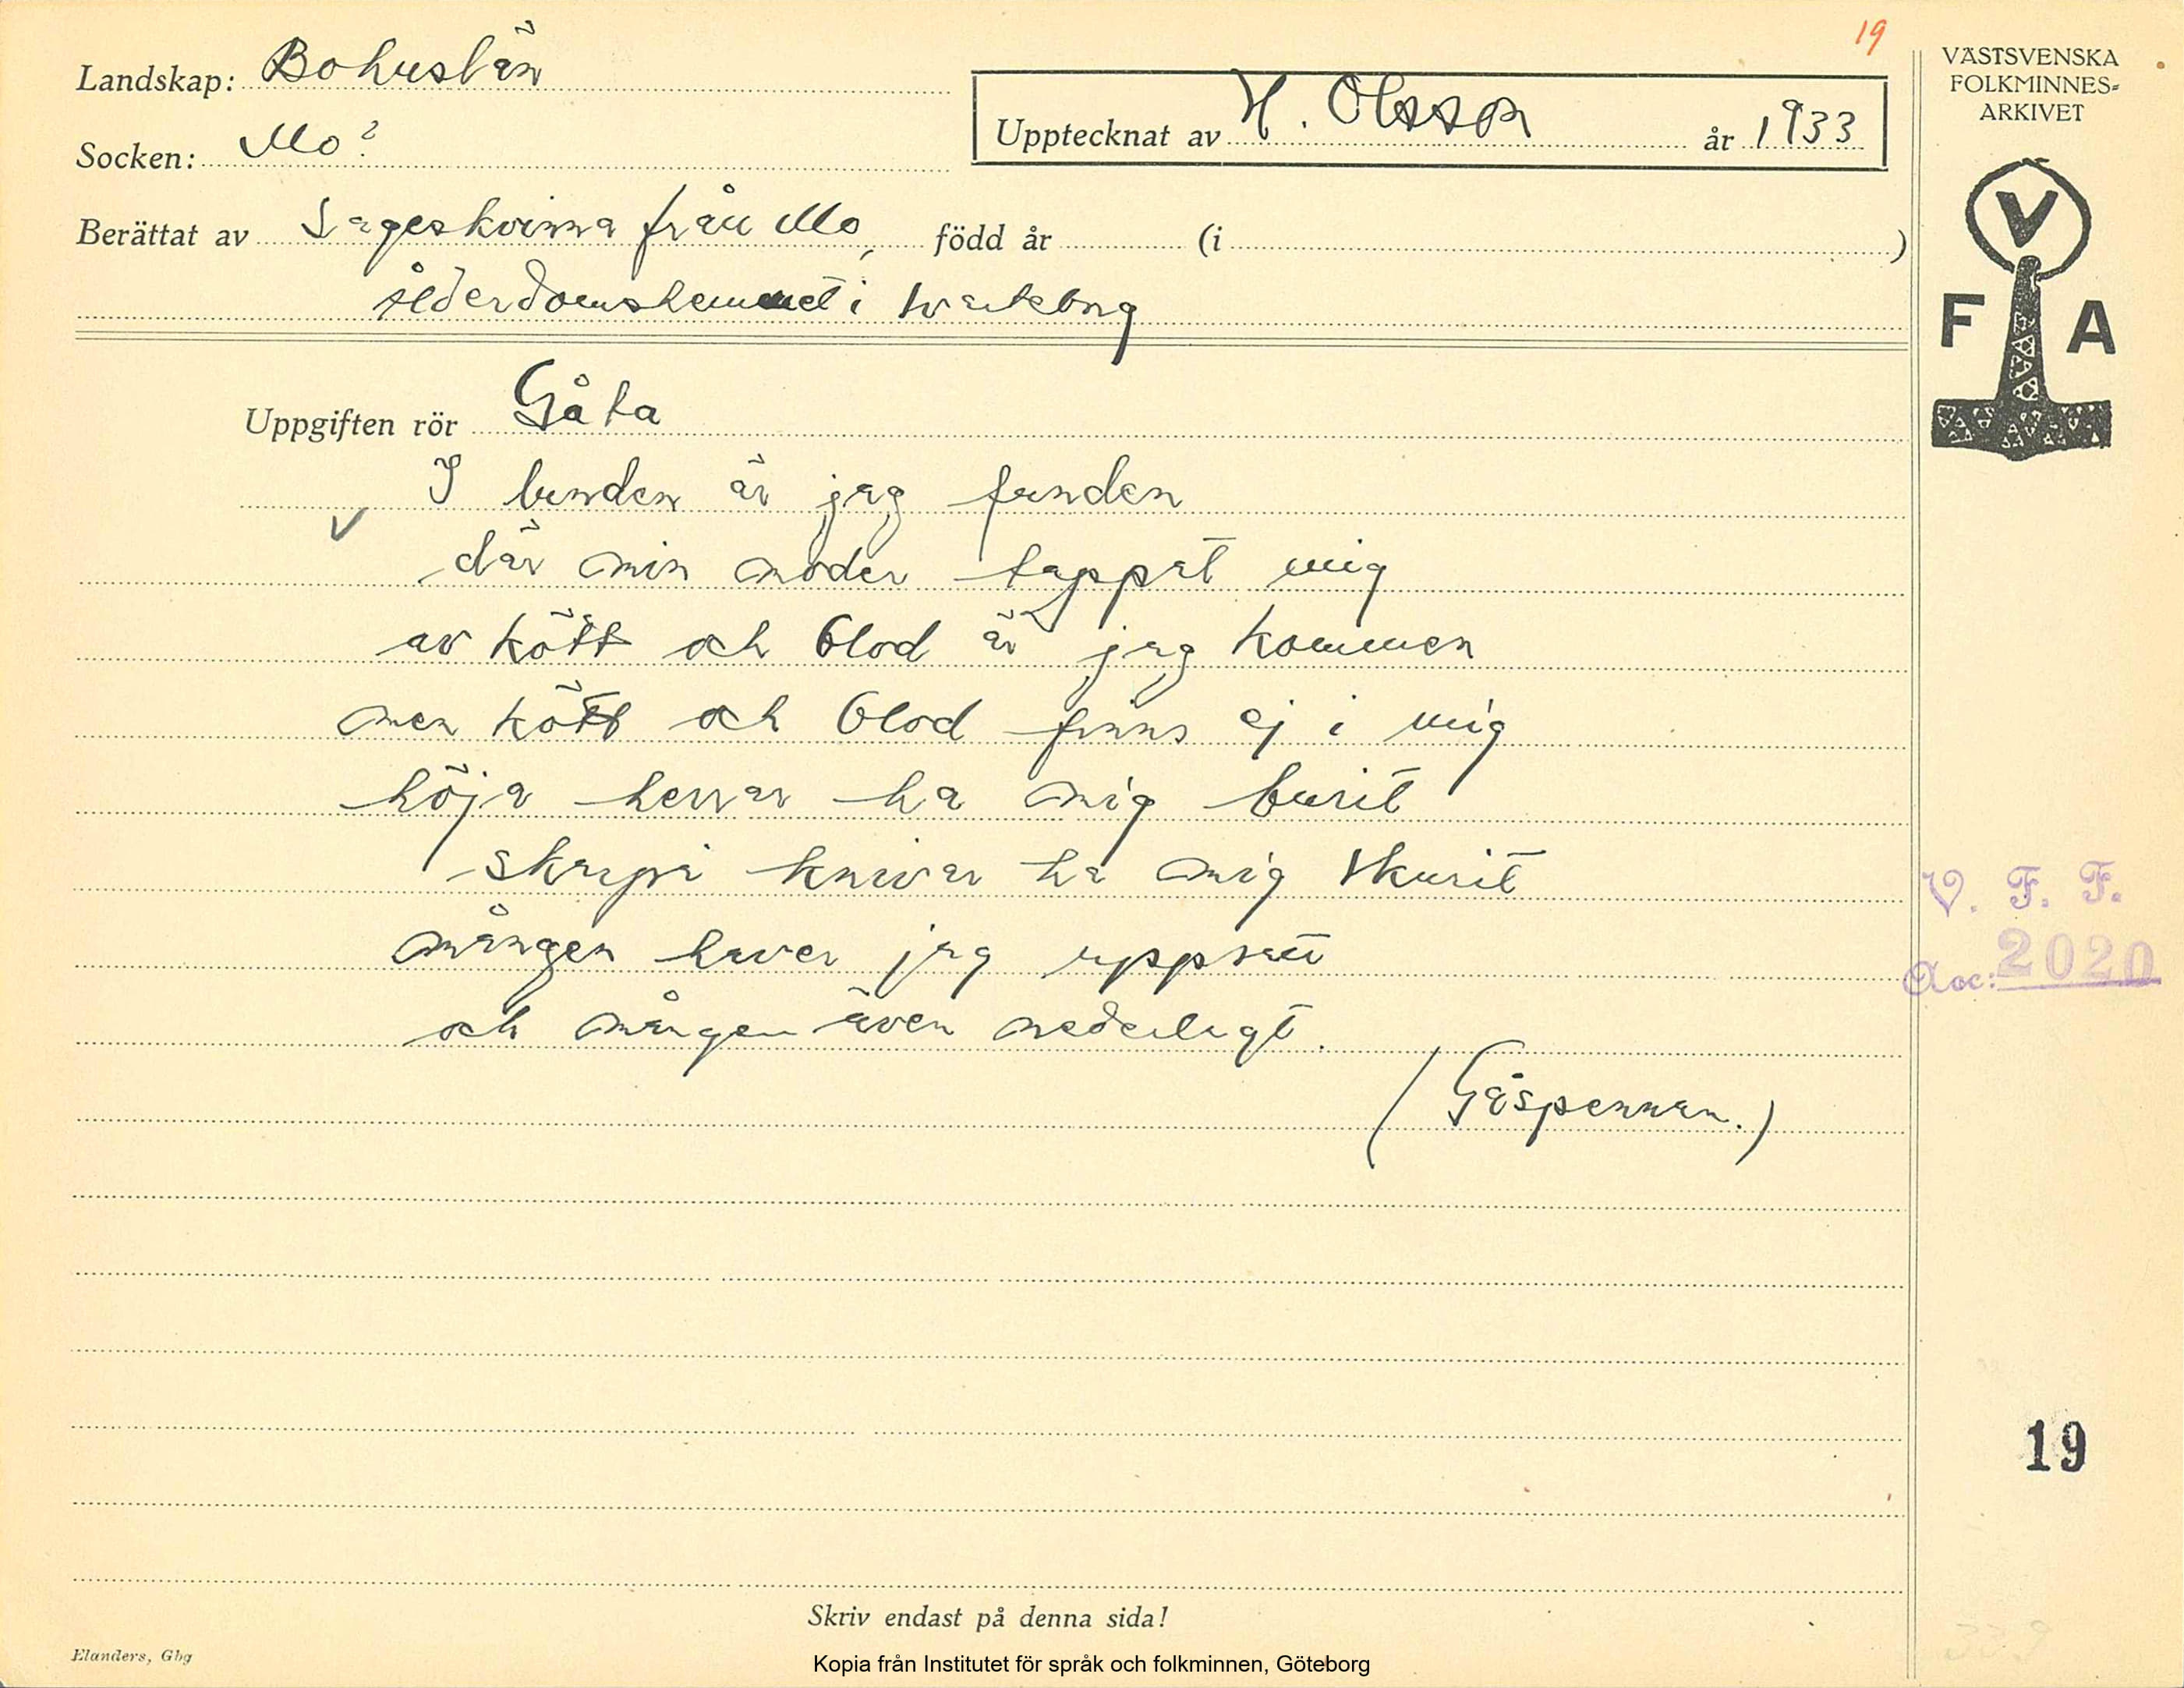 19
Landskap: Bohuslän
Socken: Mo?
Upptecknat av H. Olsson år 1933
Berättat av Sageskvinna från Mo, född år (i )
ålderdomshemmet i
Uppgiften rör Gåta
I lunden är jag funden
V
där min moder tappat mig
av kött och blod är jag kommen
men kött och blod finns ej i mig
höja herrar ha mig burit
skarpa knivar ha mig skurit
mången haver jag uppsatt
och mången även nederlagt.
(Gåspennan.)
Skriv endast på denna sida!
Elanders, Gbg
Kopia från Institutet för språk och folkminnen, Göteborg
VÄSTSVENSKA
FOLKMINNES-
ARKIVET
V
F A
V. F. F.
Acc: 2020
19